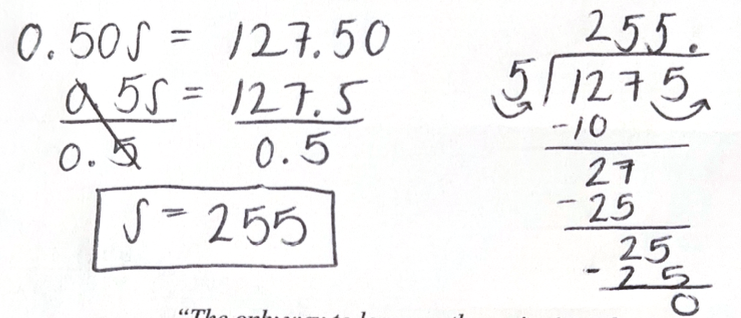 0.50s = 127.50
0.5s = 127.5
0.5 0.5
s = 255
255.
5)1275
-10
27
-25
25
-25
0
"The only